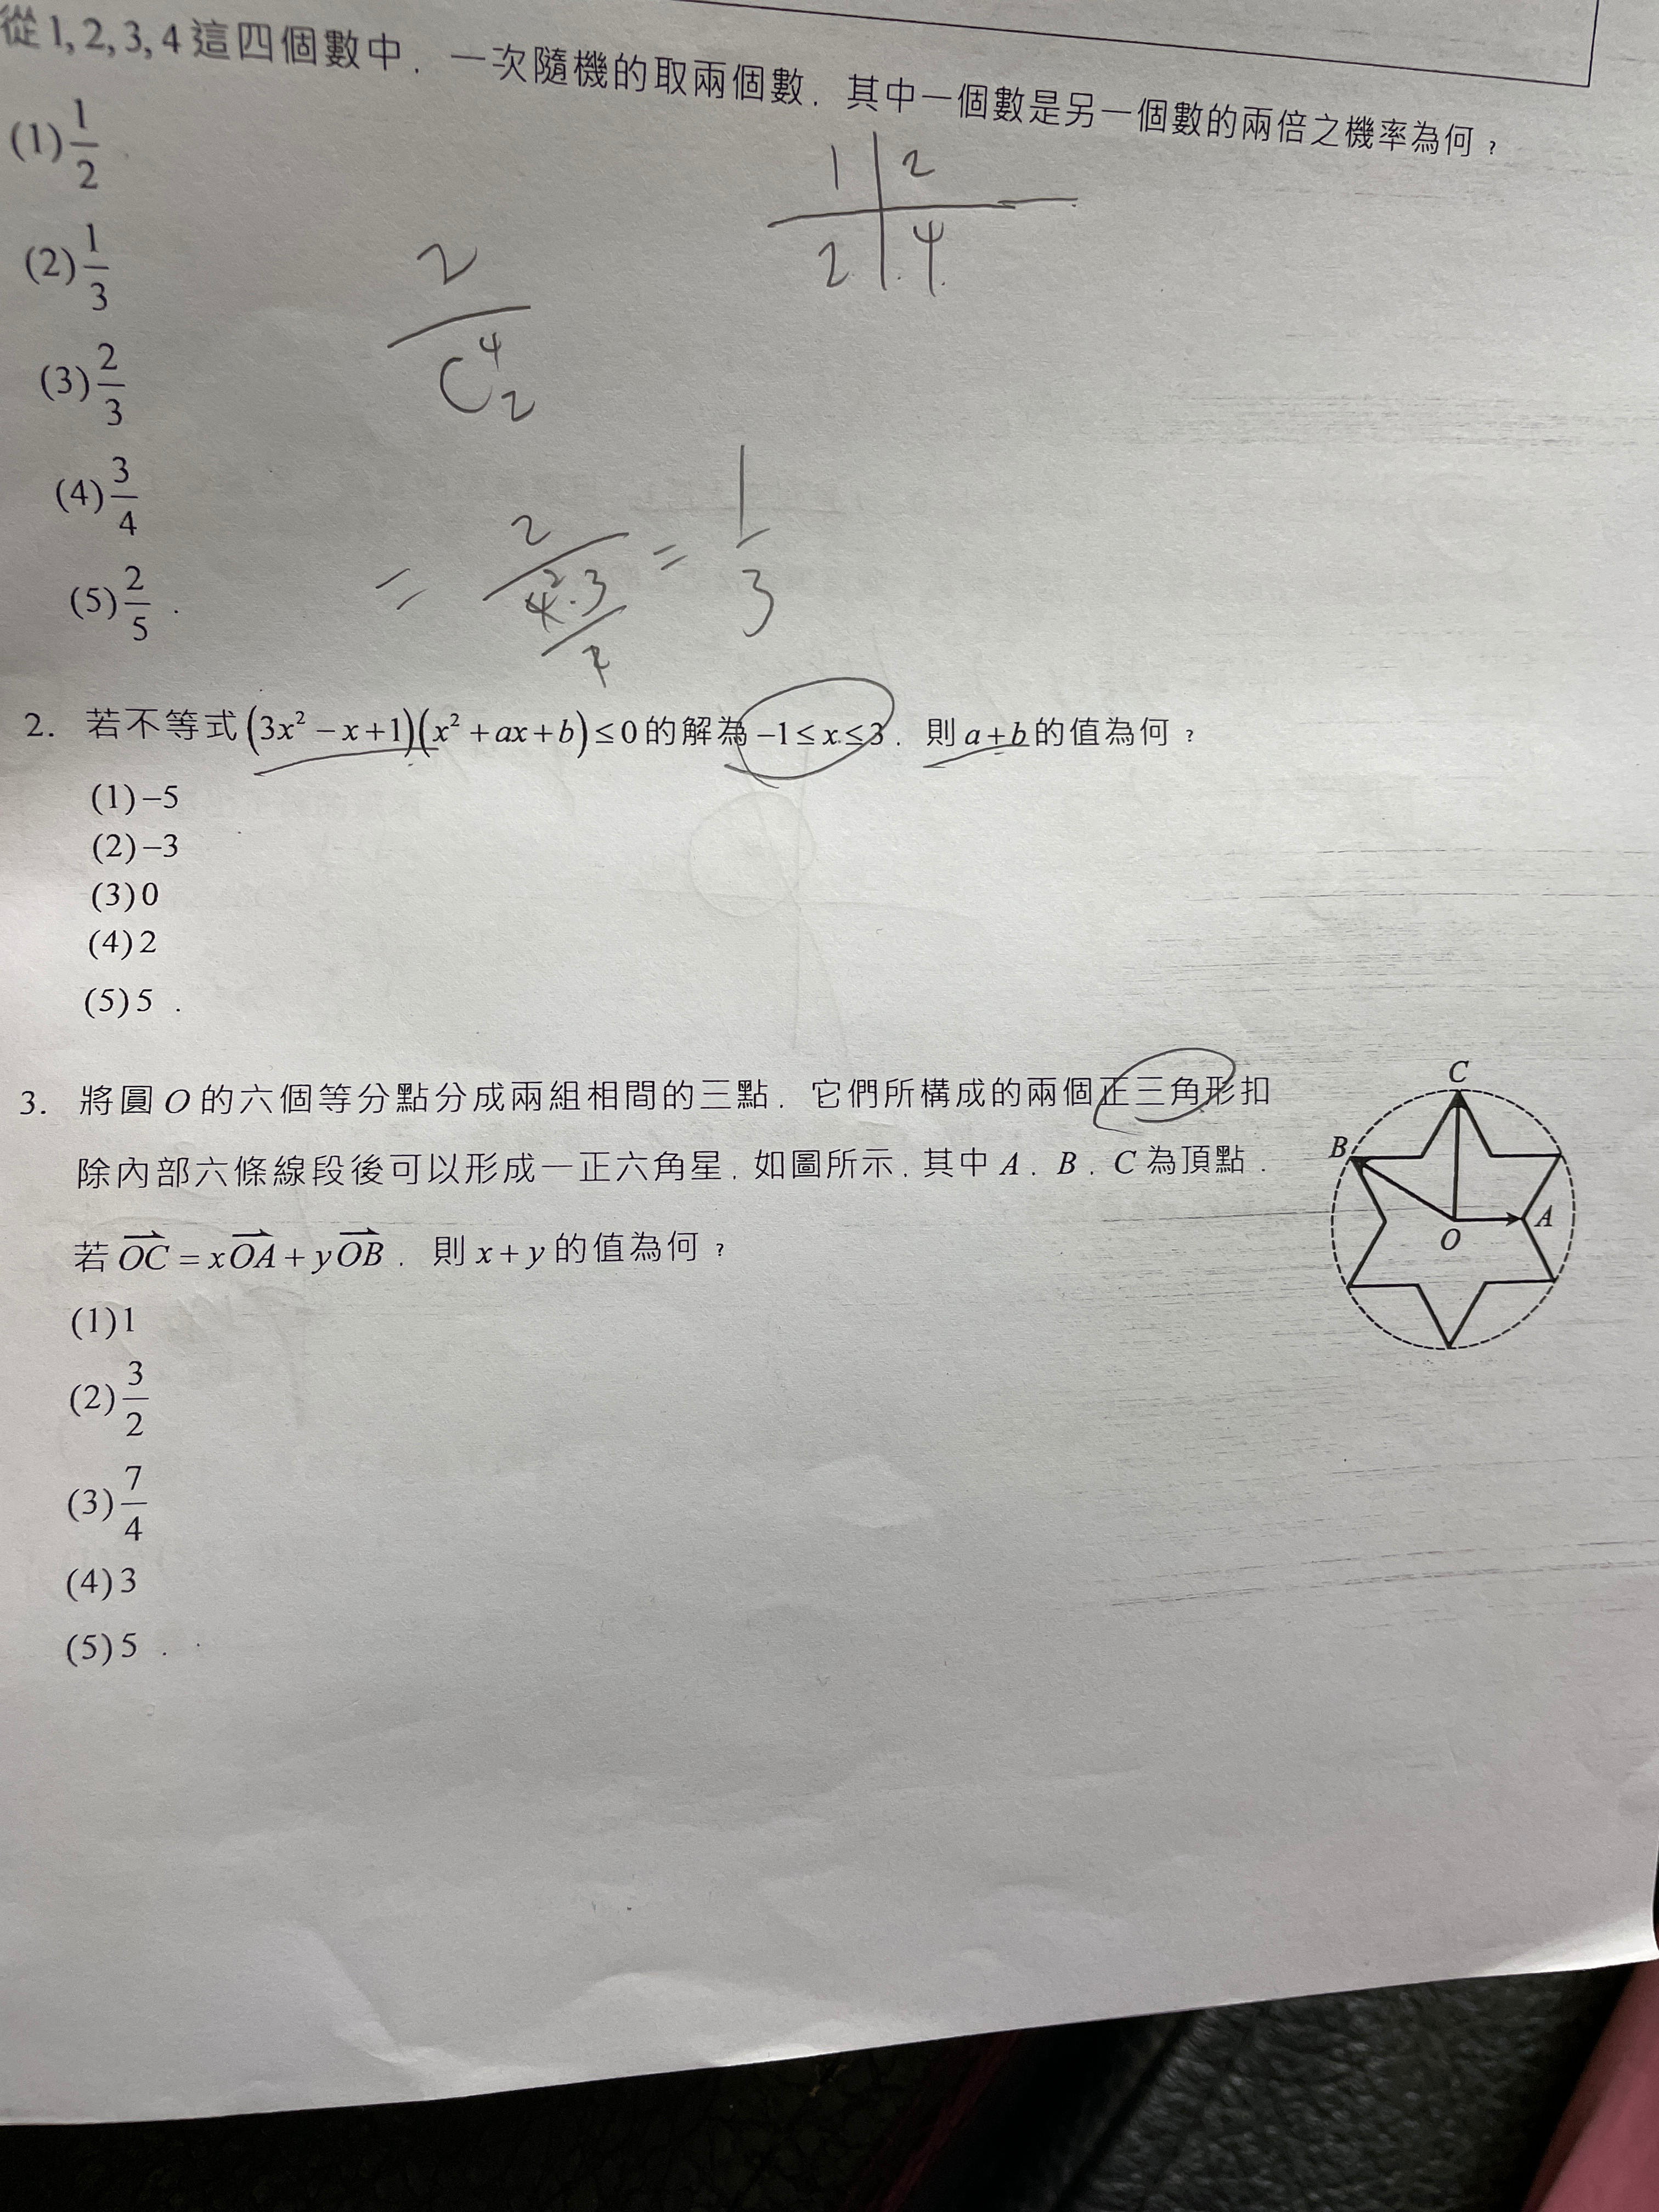 從1, 2, 3, 4這四個數中，一次隨機的取兩個數，其中一個數是另一個數的兩倍之機率為何？
(1) 1/2
(2) 1/3
(3) 2/3
(4) 3/4
(5) 2/5．
1 | 2
2 | 4
2/C⁴₂
= 2/(4²·3/2) = 1/3
2. 若不等式(3x²−x+1)(x²+ax+b)≤0的解為−1≤x≤3，則a+b的值為何？
(1)−5
(2)−3
(3)0
(4)2
(5)5．
3. 將圓O的六個等分點分成兩組相間的三點，它們所構成的兩個正三角形扣
除內部六條線段後可以形成一正六角星，如圖所示，其中A，B，C為頂點．
若OC⃗=xOA⃗+yOB⃗，則x+y的值為何？
(1)1
(2) 3/2
(3) 7/4
(4)3
(5)5．
C
B
A
O